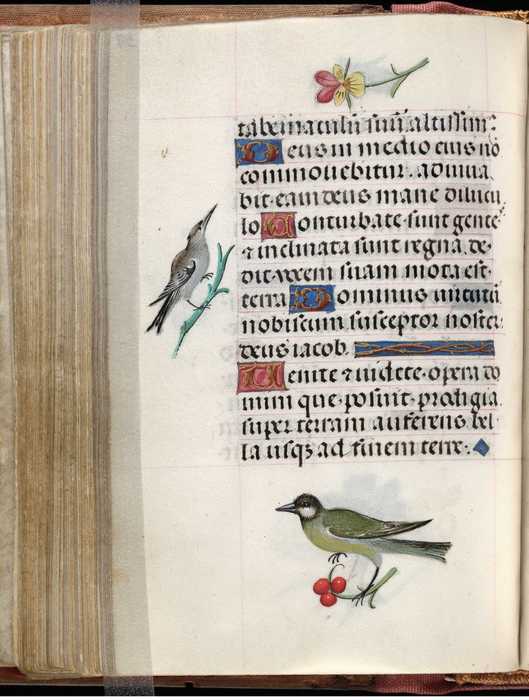 tabernaculū suū altissim⁹.
Deus in medio eius nō
commouebitur. adiuua
bit eam deus mane dilucu
lo Conturbate sunt gente
⁊ inclinata sunt regna. de
dit vocem suam mota est.
terra Dominus uirtutū
nobiscum susceptor noster
deus iacob.
Uenite ⁊ uidete opera do
mini que posuit prodigia
super terram auferens bel
la usqꝫ ad finem terre.